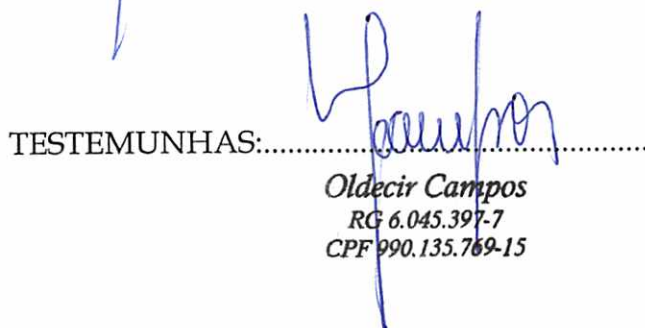 TESTEMUNHAS:
Oldecir Campos
RG 6.045.397-7
CPF 990.135.769-15